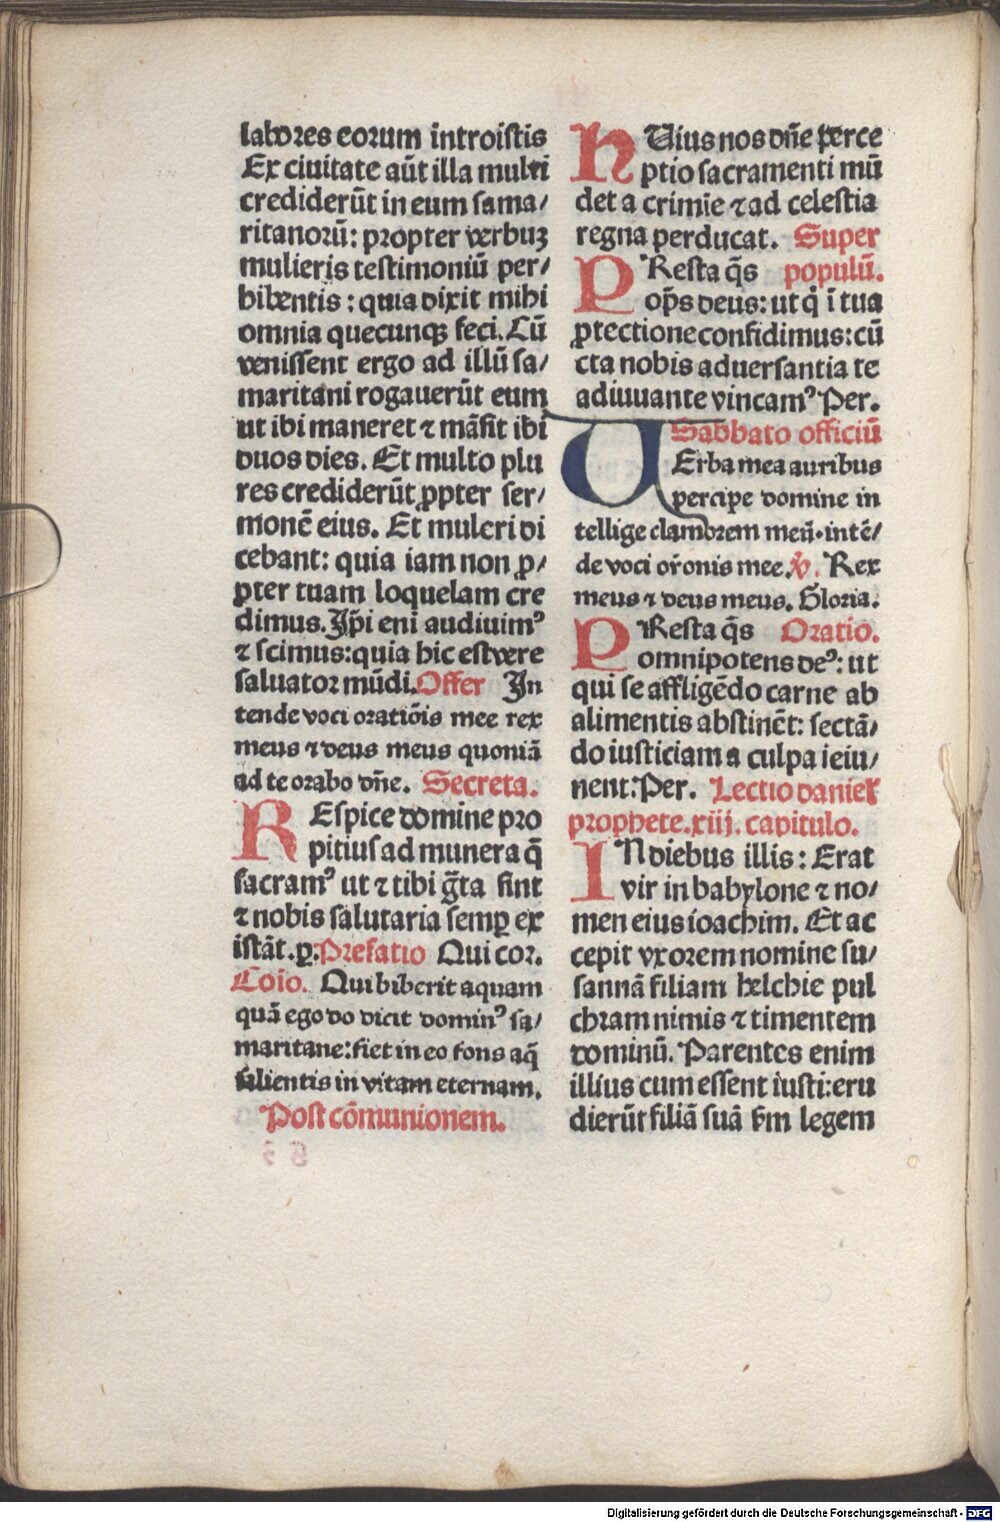 labores eorum introistis
Ex ciuitate aūt illa multi
crediderūt in eum sama/
ritanorū: propter verbuꝫ
mulieris testimoniū per/
hibentis: quia dixit mihi
omnia quecunqꝫ feci. Cū
venissent ergo ad illū sa/
maritani rogauerūt eum
ut ibi maneret ⁊ māsit ibi
duos dies. Et multo plu
res crediderūt ꝓpter ser/
monē eius. Et muleri di
cebant: quia iam non ꝓ/
pter tuam loquelam cre
dimus. Ip̄i eni audiuimꝰ
⁊ scimus: quia hic est vere
saluator mūdi. Offer In
tende voci oratiōis mee rex
meus ⁊ deus meus quoniā
ad te orabo dn̄e. Secreta.
REspice domine pro
pitius ad munera q̄
sacramꝰ ut ⁊ tibi g̃ta sint
⁊ nobis salutaria semꝑ ex
istāt. ꝑ. Prefatio Qui cor.
Coīo. Qui biberit aquam
quā ego do dicit dominꝰ sa/
maritane: fiet in eo fons aq̄
salientis in vitam eternam.
Post cōmunionem.
hUius nos dn̄e perce
ptio sacramenti mū
det a crimīe ⁊ ad celestia
regna perducat. Super
PResta q̄s populū.
op̄s deus: ut q̇ ī tua
ꝓtectione confidimus: cū
cta nobis aduersantia te
adiuuante vincamꝰ Per.
Sabbato officiū
VErba mea auribus
percipe domine in
tellige clamorem meū. intē/
de voci or̄onis mee. ℣. Rex
meus ⁊ deus meus. Gloria.
PResta q̄s Oratio.
omnipotens deꝰ: ut
qui se affligēdo carne ab
alimentis abstinēt: sectā/
do iusticiam a culpa ieiu/
nent: Per. Lectio daniel
prophete. xiij. capitulo.
IN diebus illis: Erat
vir in babylone ⁊ no/
men eius ioachim. Et ac
cepit vxorem nomine su/
sannā filiam helchie pul
chram nimis ⁊ timentem
dominū. Parentes enim
illius cum essent iusti: eru
dierūt filiā suā ẜm legem
Digitalisierung gefördert durch die Deutsche Forschungsgemeinschaft - DFG